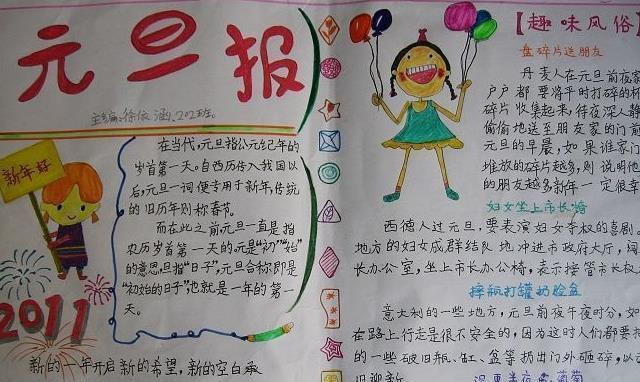 元旦报
主编:徐依涵、202班。
新年好
2011
在当代,元旦指公元纪年的
岁首第一天。自西历传入我国以
后,元旦一词便专用于新年,传统
的旧历年则称春节。
而在此之前元旦一直是指
农历岁首第一天的。元是“初”“始”
的意思,旦指“日子”,元旦合称即是
“初始的日子”,也就是一年的第一
天。
新的一年开启新的希望,新的空白承
【趣味风俗
盘碎片送朋友
丹麦人在元旦前夜家
户户都要将平时打碎的杯
碎片收集起来,待夜深人静
偷偷地送至朋友家的门前
元旦的早晨,如果谁家门
堆放的碎片越多,则说明他
的朋友越多新年一定很幸
妇女坐上市长椅
西德人过元旦,要表演妇女夺权的喜剧。
地方的妇女成群结队地冲进市政府大厅,闯
长办公室,坐上市长办公椅,表示接管市长权
摔瓶打罐扔脸盆
意大利的一些地方,元旦前夜午夜时分,如
在路上行走是很不安全的,因为这时人们都要
的一些破旧瓶、缸、盆等扔出门外砸碎,以
旧迎新